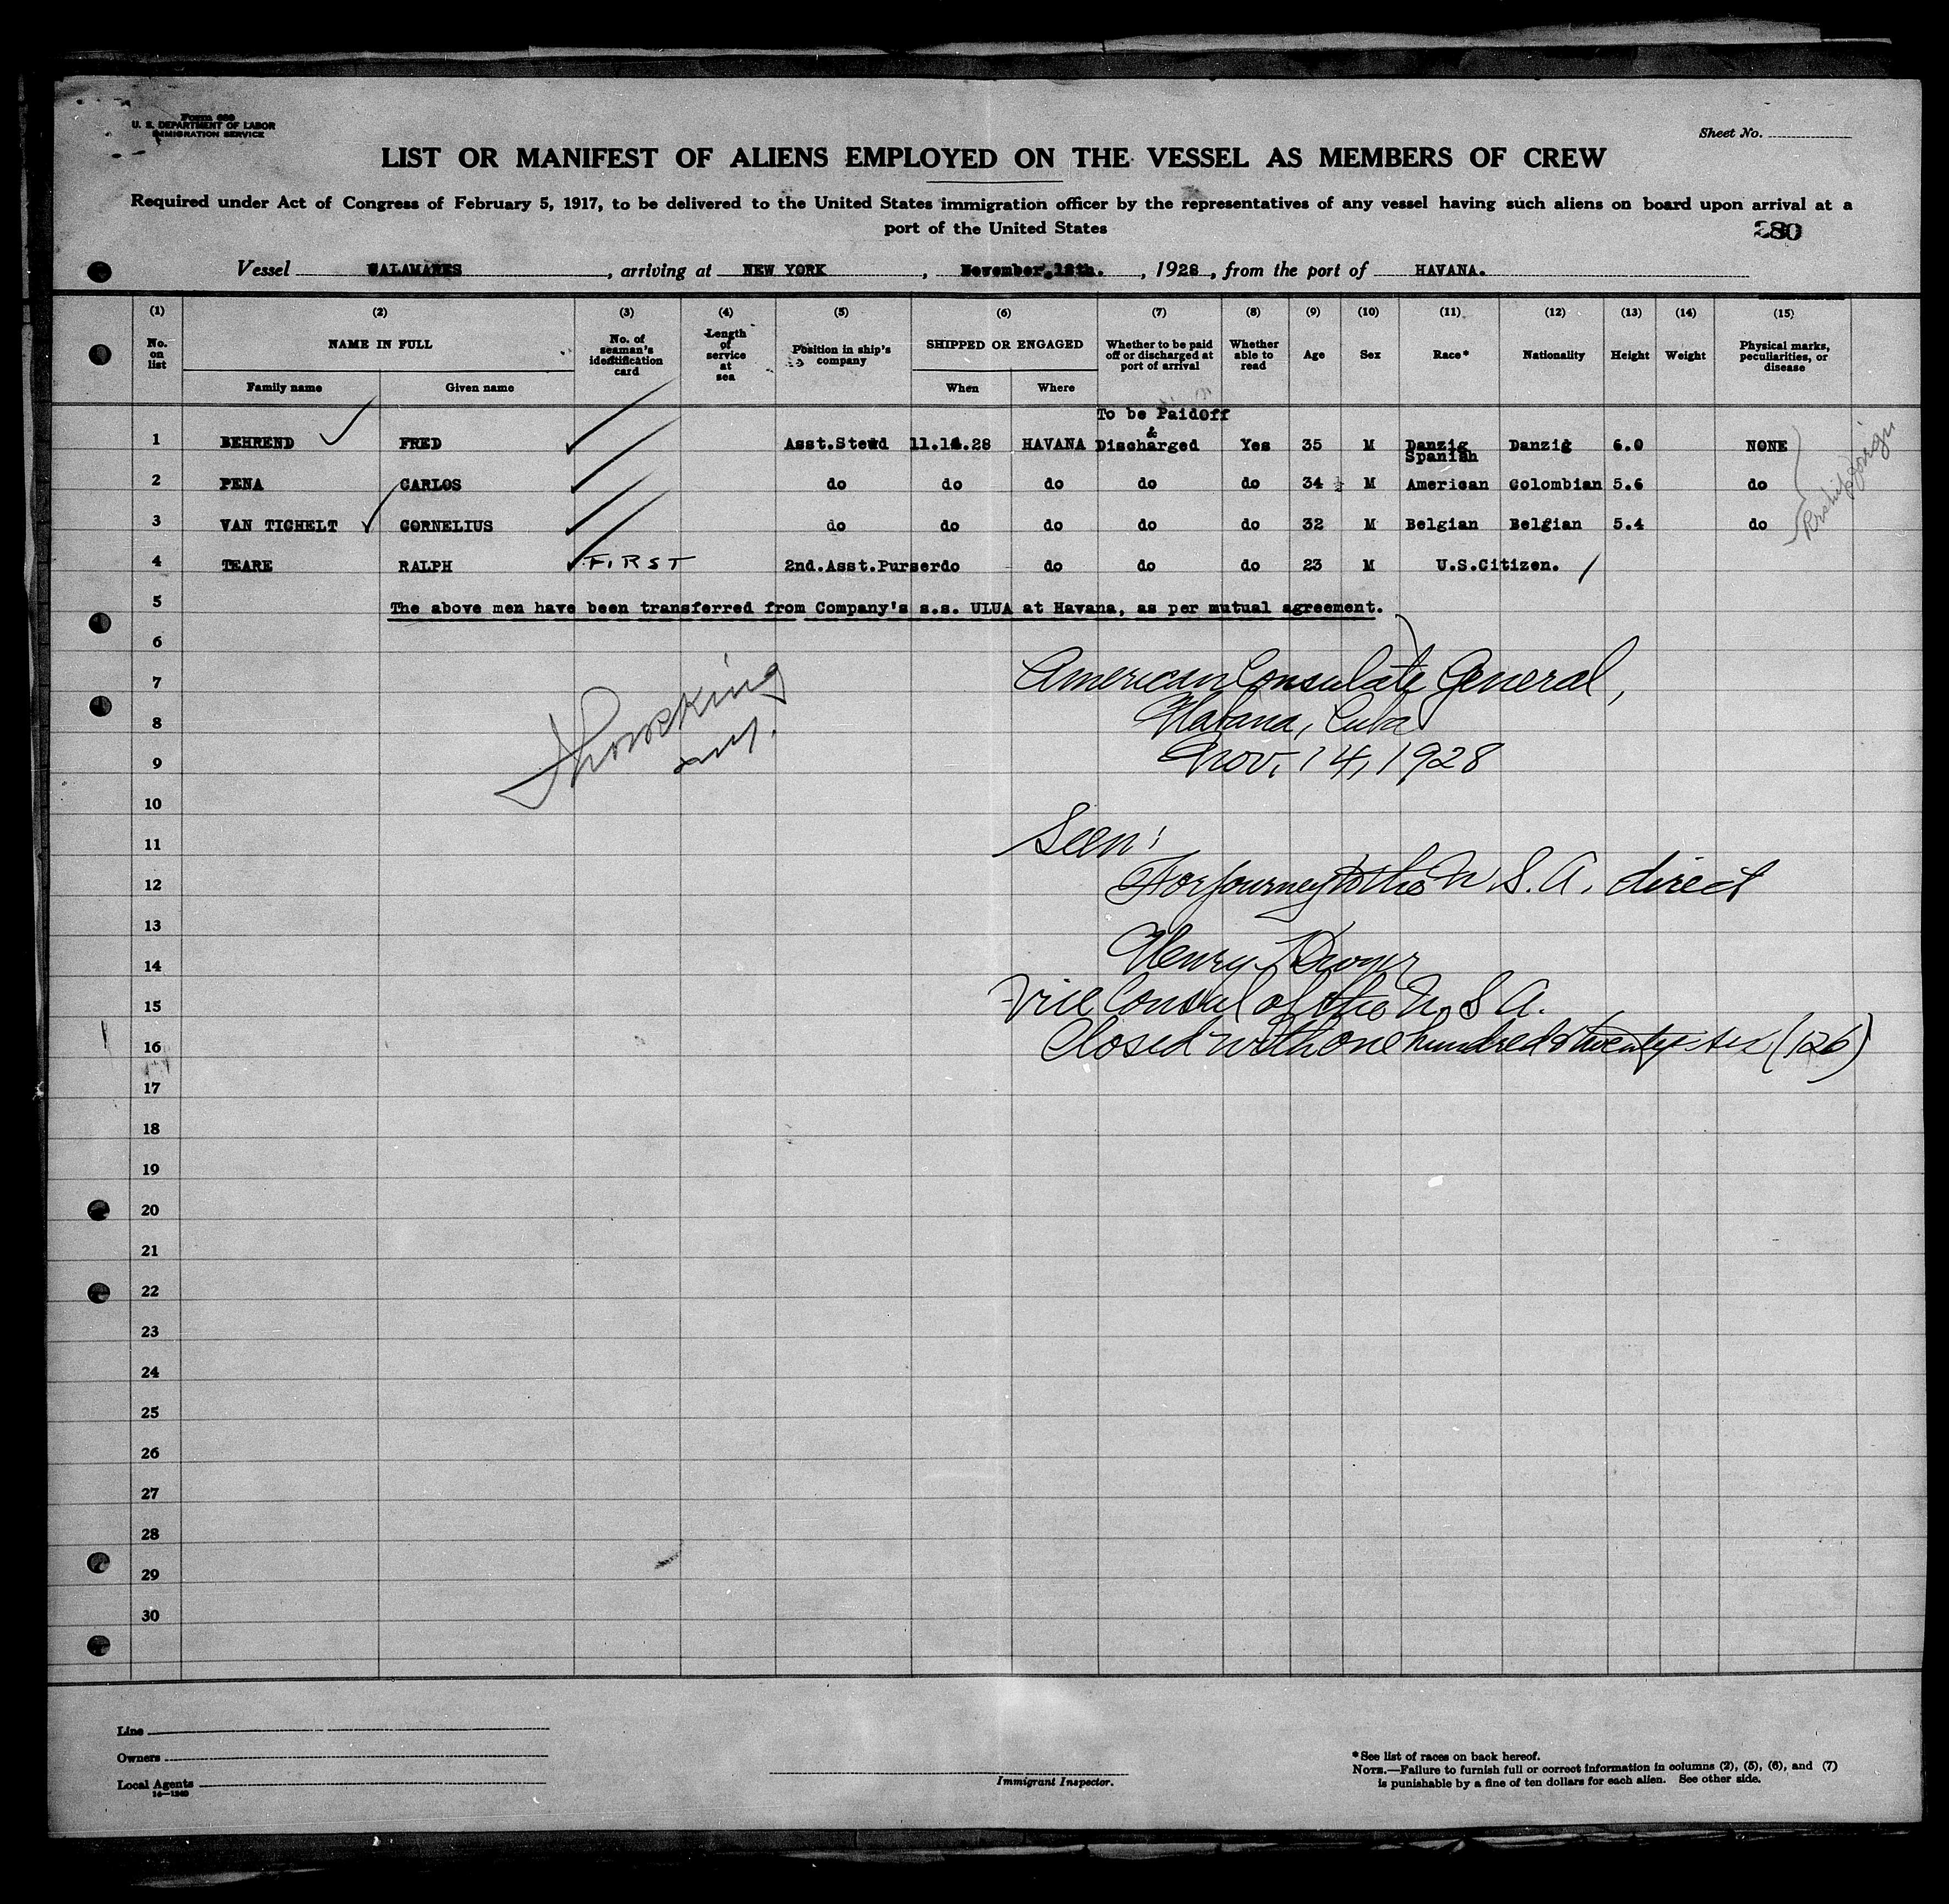 Form 689
U. S. DEPARTMENT OF LABOR
IMMIGRATION SERVICE
Sheet No.
LIST OR MANIFEST OF ALIENS EMPLOYED ON THE VESSEL AS MEMBERS OF CREW
Required under Act of Congress of February 5, 1917, to be delivered to the United States immigration officer by the representatives of any vessel having such aliens on board upon arrival at a
port of the United States
280
Vessel CALAMARES, arriving at NEW YORK, November, 1928, from the port of HAVANA.
(1) (2) (3) (4) (5) (6) (7) (8) (9) (10) (11) (12) (13) (14) (15)
No. on list NAME IN FULL No. of seaman's identification card Length of service at sea Position in ship's company SHIPPED OR ENGAGED Whether to be paid off or discharged at port of arrival Whether able to read Age Sex Race* Nationality Height Weight Physical marks, peculiarities, or disease
Family name Given name When Where
To be Paidoff
&
1 BEHREND FRED Asst.Stewd 11.14.28 HAVANA Discharged Yes 35 M Danzig Danzig 6.0 NONE
Spanish
2 PENA CARLOS do do do do do 34 M American Colombian 5.6 do
3 VAN TICHELT CORNELIUS do do do do do 32 M Belgian Belgian 5.4 do
4 TEARE RALPH FIRST 2nd.Asst.Purser do do do do 23 M U.S.Citizen.
5 The above men have been transferred from Company's s.s. ULUA at Havana, as per mutual agreement.
6
7 American Consulate General,
8 Habana, Cuba
9 Nov. 14, 1928
10
11 Seen:
12 For journey to the U.S.A. direct
13
14 Henry Dwyer
15 Vice Consul of the U.S.A.
16 Closed with one hundred & twenty six (126)
17
18
19
20
21
22
23
24
25
26
27
28
29
30
Line
Owners
Local Agents
14—1240
Immigrant Inspector.
*See list of races on back hereof.
NOTE.—Failure to furnish full or correct information in columns (2), (5), (6), and (7)
is punishable by a fine of ten dollars for each alien. See other side.